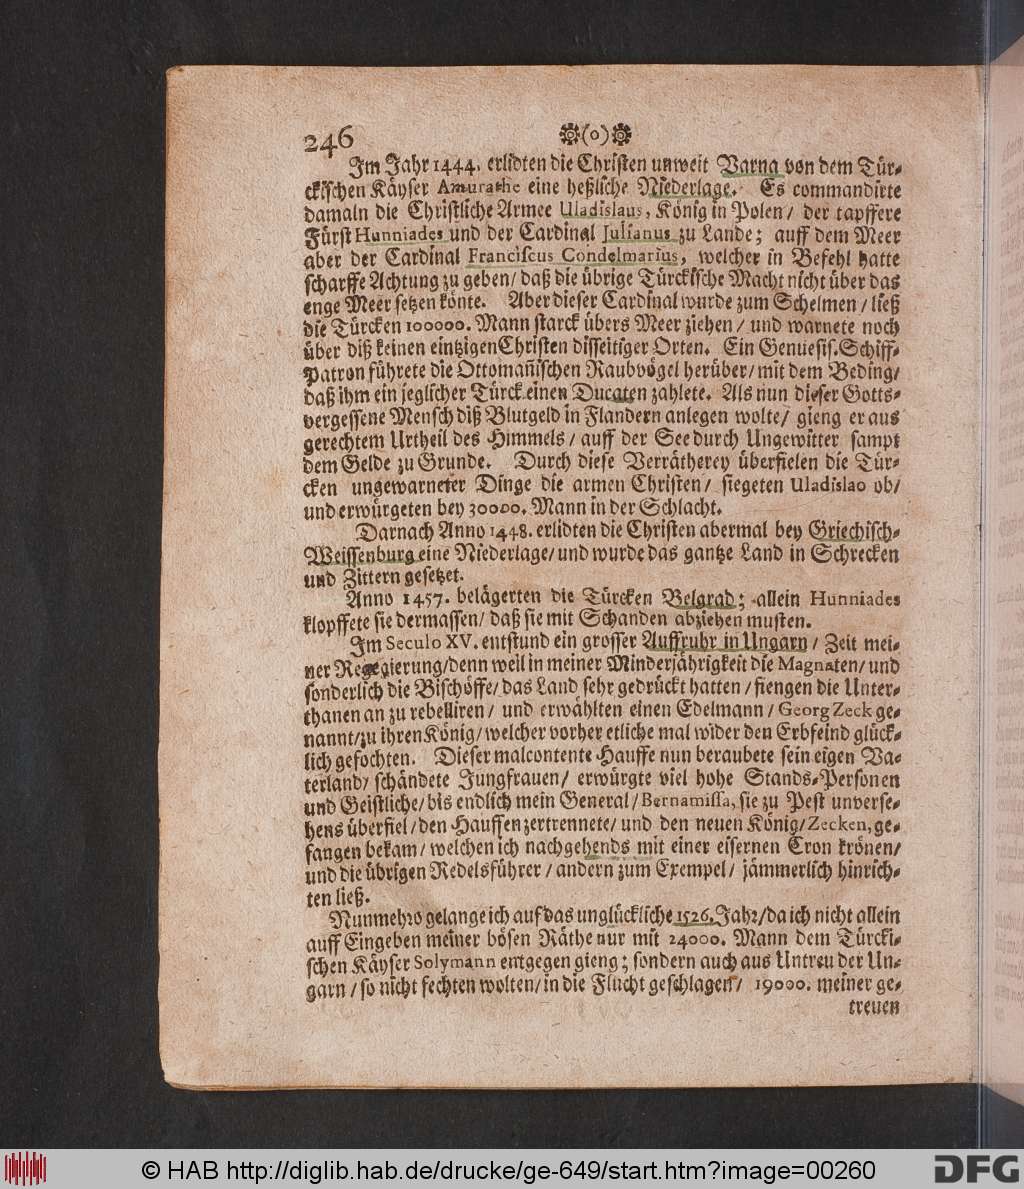 246 (o)
Im Jahr 1444. erlidten die Christen unweit Varna von dem Tür-
ckischen Käyser Amurathe eine heßliche Niederlage. Es commandirte
damaln die Christliche Armee Uladislaus, König in Polen/ der tapffere
Fürst Hunniades und der Cardinal Julianus zu Lande; auff dem Meer
aber der Cardinal Franciscus Condelmarius, welcher in Befehl hatte
scharffe Achtung zu geben/ daß die übrige Türckische Macht nicht über das
enge Meer setzen könte. Aber dieser Cardinal wurde zum Schelmen/ ließ
die Türcken 100000. Mann starck übers Meer ziehen/ und warnete noch
über diß keinen eintzigen Christen disseitiger Orten. Ein Genuesis. Schiff-
Patron führete die Ottomañischen Raubvögel herüber/ mit dem Beding/
daß ihm ein jeglicher Türck einen Ducaten zahlete. Als nun dieser Gotts-
vergessene Mensch diß Blutgeld in Flandern anlegen wolte/ gieng er aus
gerechtem Urtheil des Himmels/ auff der See durch Ungewitter sampt
dem Gelde zu Grunde. Durch diese Verrätherey überfielen die Tür-
cken ungewarneter Dinge die armen Christen/ siegeten Uladislao ob/
und erwürgeten bey 30000. Mann in der Schlacht.
Darnach Anno 1448. erlidten die Christen abermal bey Griechisch-
Weissenburg eine Niederlage/ und wurde das gantze Land in Schrecken
und Zittern gesetzet.
Anno 1457. belägerten die Türcken Belgrad; allein Hunniades
klopffete sie dermassen/ daß sie mit Schanden abziehen musten.
Im Seculo XV. entstund ein grosser Auffruhr in Ungarn/ Zeit mei-
ner Regegierung/ denn weil in meiner Minderjährigkeit die Magnaten/ und
sonderlich die Bischöffe/ das Land sehr gedrückt hatten/ fiengen die Unter-
thanen an zu rebelliren/ und erwählten einen Edelmann/ Georg Zeck ge-
nannt/ zu ihren König/ welcher vorher etliche mal wider den Erbfeind glück-
lich gefochten. Dieser malcontente Hauffe nun beraubete sein eigen Va-
terland/ schändete Jungfrauen/ erwürgte viel hohe Stands-Personen
und Geistliche/ bis endlich mein General/ Bernamissa, sie zu Pest unverse-
hens überfiel/ den Hauffen zertrennete/ und den neuen König/ Zecken, ge-
fangen bekam/ welchen ich nachgehends mit einer eisernen Cron krönen/
und die übrigen Redelsführer/ andern zum Exempel/ jämmerlich hinrich-
ten ließ.
Nunmehro gelange ich auf das unglückliche 1526. Jahr/ da ich nicht allein
auff Eingeben meiner bösen Räthe nur mit 24000. Mann dem Türcki-
schen Käyser Solymann entgegen gieng; sondern auch aus Untreu der Un-
garn/ so nicht fechten wolten/ in die Flucht geschlagen/ 19000. meiner ge-
treuen
© HAB http://diglib.hab.de/drucke/ge-649/start.htm?image=00260
DFG